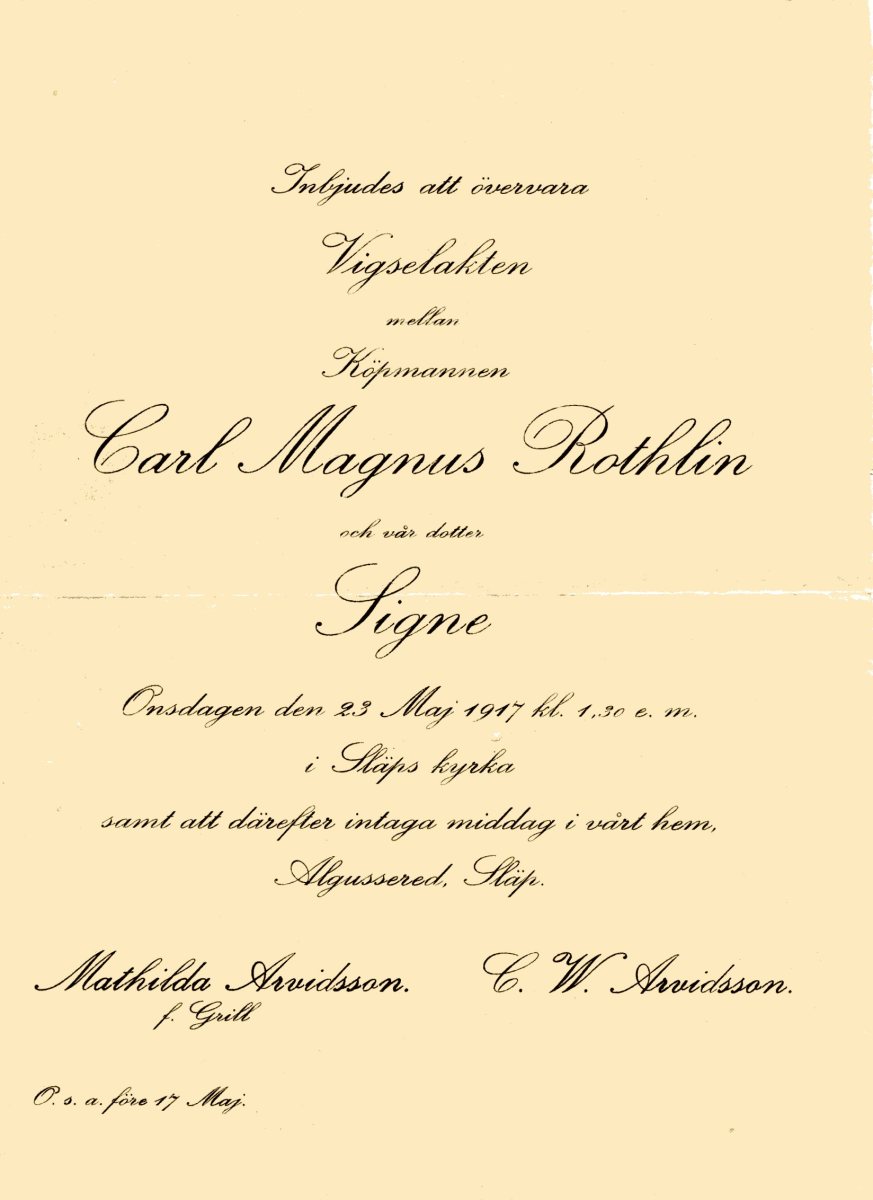 Inbjudes att övervara
Vigselakten
mellan
Köpmannen
Carl Magnus Rothlin
och vår dotter
Signe
Onsdagen den 23 Maj 1917 kl. 1,30 e. m.
i Släps kyrka
samt att därefter intaga middag i vårt hem,
Algussered, Släp.
Mathilda Arvidsson. C. W. Arvidsson.
f. Grill
O. s. a. före 17 Maj.